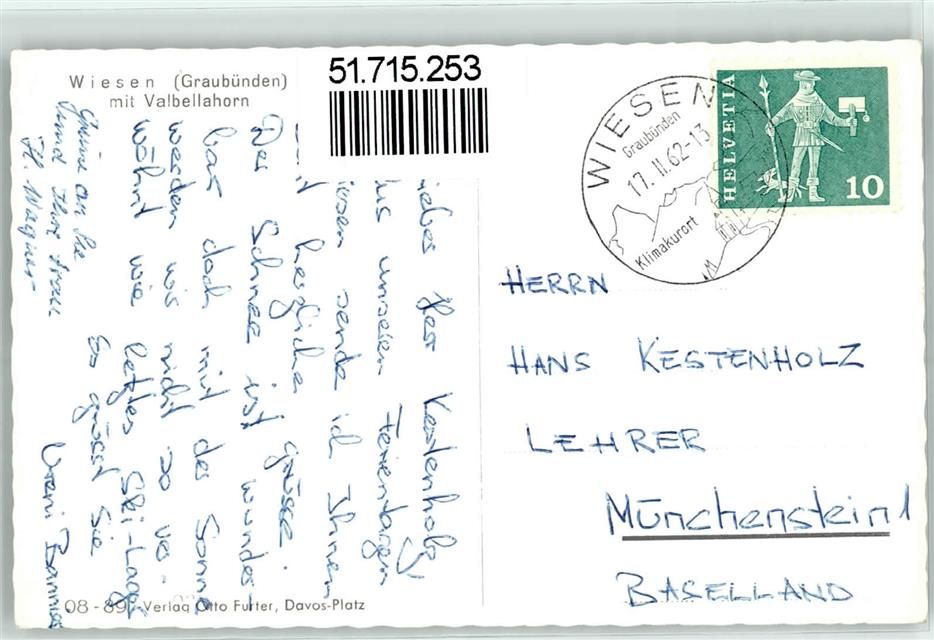 Wiesen (Graubünden)
mit Valbellahorn
51.715.253
WIESEN
Graubünden
17.II.62-13
Klimakurort
HELVETIA
10
HERRN
HANS KESTENHOLZ
LEHRER
Münchenstein 1
BASELLAND
iebes Herr Kestenholz
us unseren Ferientagen
iesen sende ich Ihnen
herzliche Grüsse.
Der Schnee ist wunder-
bar doch mit der Sonne
werden wir nicht so ver-
wöhnt wie letztes Ski-Lager
Es grüsst Sie
Vreni
Grüsse an Sie
und Ihre Frau
H. Wagner
08-89 Verlag Otto Furter, Davos-Platz